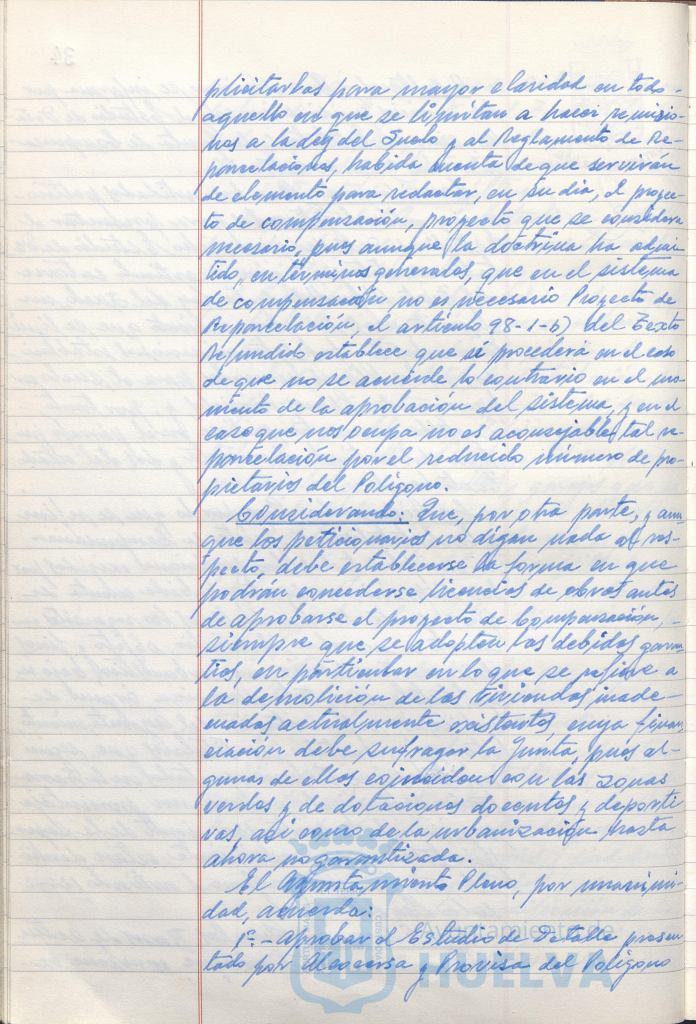 plicitarlas para mayor claridad en todo-
aquello en que se limitan a hacer remisio-
nes a la Ley del Suelo y al Reglamento de Re-
parcelaciones, habida cuenta de que servirán
de elemento para redactar, en su dia, el proyec-
to de compensación, proyecto que se considera
necesario, pues aunque la doctrina ha admi-
tido, en términos generales, que en el sistema
de compensación no es necesario Proyecto de
Reparcelación, el artículo 98-1-b) del Texto
Refundido establece que si procederá en el caso
de que no se acuerde lo contrario en el mo-
mento de la aprobación del sistema, y en el
caso que nos ocupa no es aconsejable tal re-
parcelación por el reducido número de pro-
pietarios del Polígono.
Considerando: Que, por otra parte, y aun-
que los peticionarios no digan nada al res-
pecto, debe establecerse la forma en que
podrán concederse licencias de obras antes
de aprobarse el proyecto de Compensación,-
siempre que se adopten las debidas garan-
tías, en particular en lo que se refiere a
la demolición de las viviendas inade-
cuadas actualmente existentes, cuya finan-
ciación debe sufragar la Junta, pues al-
gunas de ellas coinciden con las zonas
verdes y de dotaciones docentes y deporti-
vas, así como de la urbanización hasta
ahora no garantizada.
El Ayuntamiento Pleno, por unanimi-
dad, acuerda:
1º.- Aprobar el Estudio de Detalle presen-
tado por Alcocersa y Provisa del Polígono
Ayuntamiento de
HUELVA